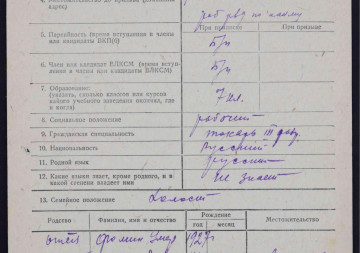 адрес)
При приписке При призыве
5. Партийность (время вступления в члены
или кандидаты ВКП(б)
Б/п
6. Член или кандидат ВЛКСМ (время вступ-
ления в члены или кандидаты ВЛКСМ)
Б/п
7. Образование:
(указать, сколько классов или курсов
какого учебного заведения окончил, где
и когда)
7 кл.
8. Социальное положение рабочий
9. Гражданская специальность токарь III
10. Национальность русский
11. Родной язык русский
12. Какие языки знает, кроме родного, и в
какой степени владеет ими не знает
13. Семейное положение Холост
Родство Фамилия, имя и отчество Рождение Местожительство
год месяц
отец Фомин